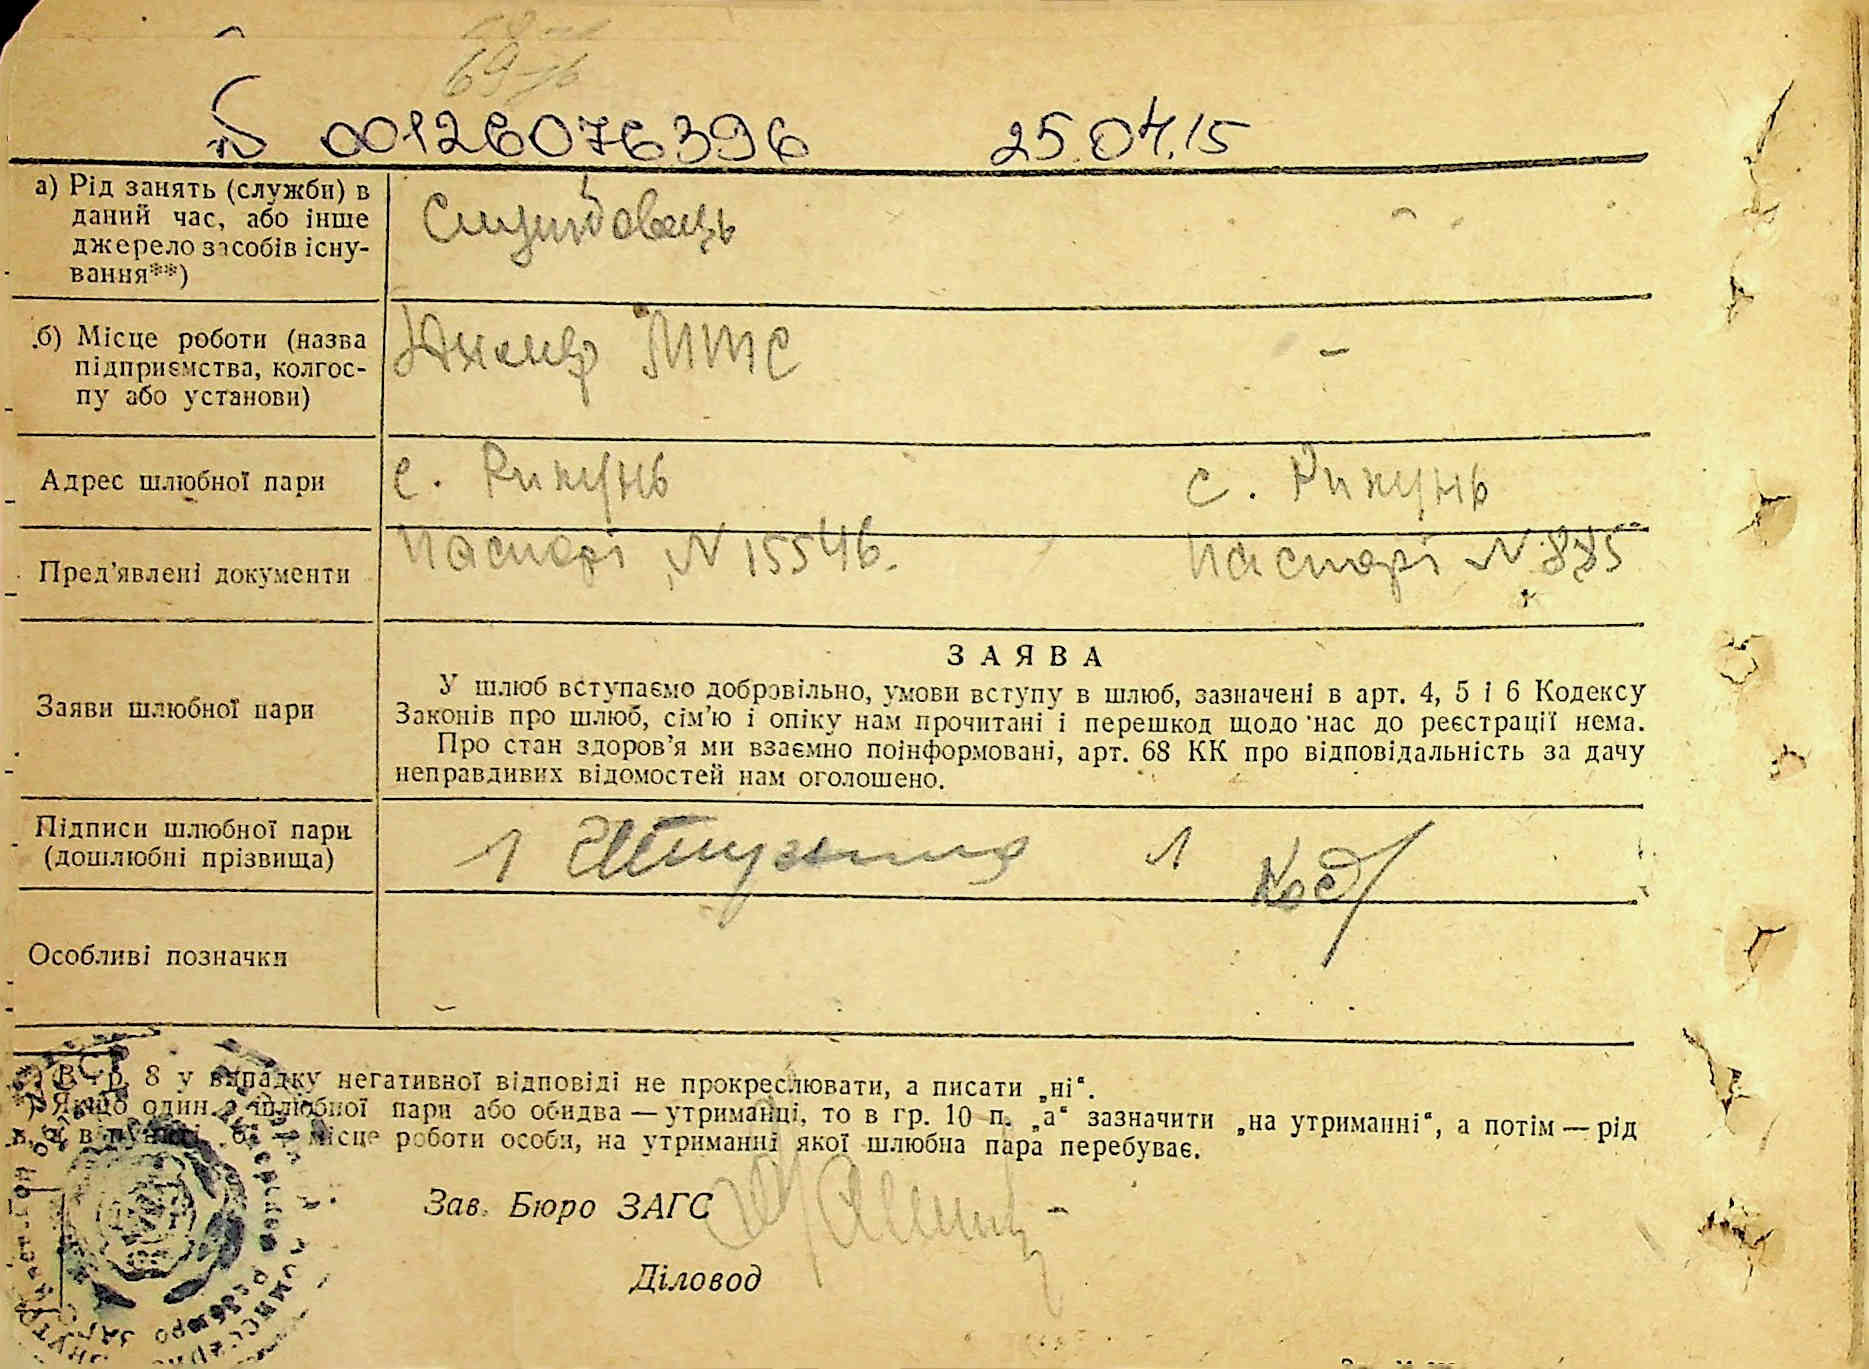 69
00126076396 25.04.15
а) Рід занять (служби) в
даний час, або інше
джерело засобів існу-
вання**)
Службовець
б) Місце роботи (назва
підприємства, колгос-
пу або установи)
МТС –
Адрес шлюбної пари
с. Рикунь с. Рикунь
Пред’явлені документи
паспорт N 15546. паспорт N 885
Заяви шлюбної пари
ЗАЯВА
У шлюб вступаємо добровільно, умови вступу в шлюб, зазначені в арт. 4, 5 і 6 Кодексу
Законів про шлюб, сім’ю і опіку нам прочитані і перешкод щодо нас до реєстрації нема.
Про стан здоров’я ми взаємно поінформовані, арт. 68 КК про відповідальність за дачу
неправдивих відомостей нам оголошено.
Підписи шлюбної пари
(дошлюбні прізвища)
1 1
Особливі позначки
В гр. 8 у випадку негативної відповіді не прокреслювати, а писати „ні“.
Якщо один з шлюбної пари або обидва — утриманці, то в гр. 10 п. „а“ зазначити „на утриманні“, а потім — рід
місце роботи особи, на утриманні якої шлюбна пара перебуває.
Зав. Бюро ЗАГС
Діловод